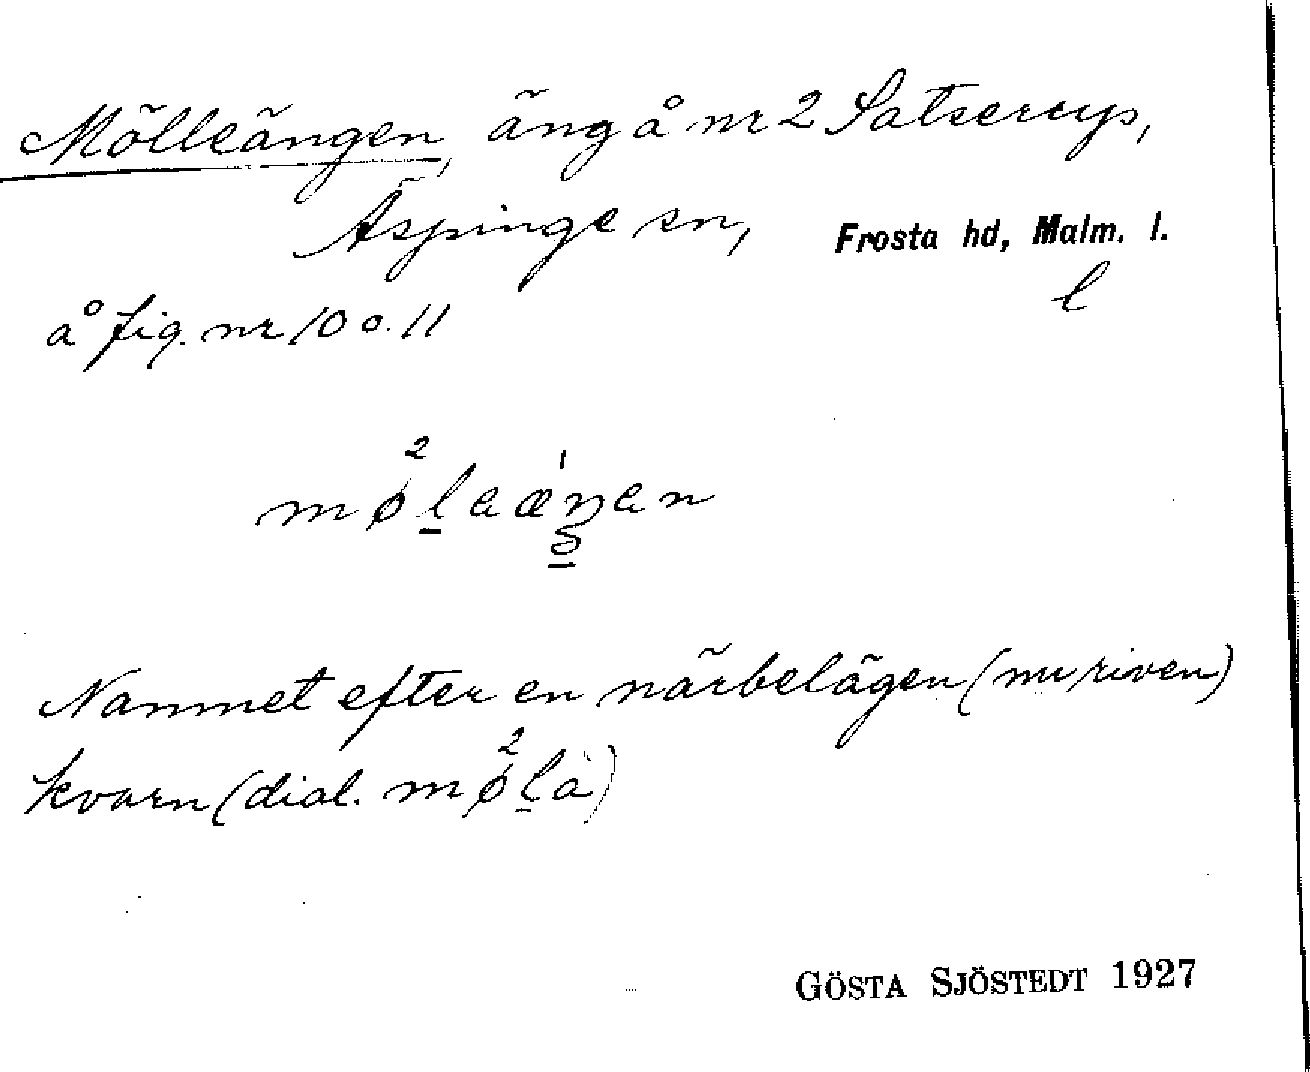 Mölleängen, äng å nr 2 Satseryp,
Äspinge sn, Frosta hd, Malm. l.
l
å fig. nr 10 o. 11
Namnet efter en närbelägen (nu riven)
kvarn (dial. mø²lä)
GÖSTA SJÖSTEDT 1927